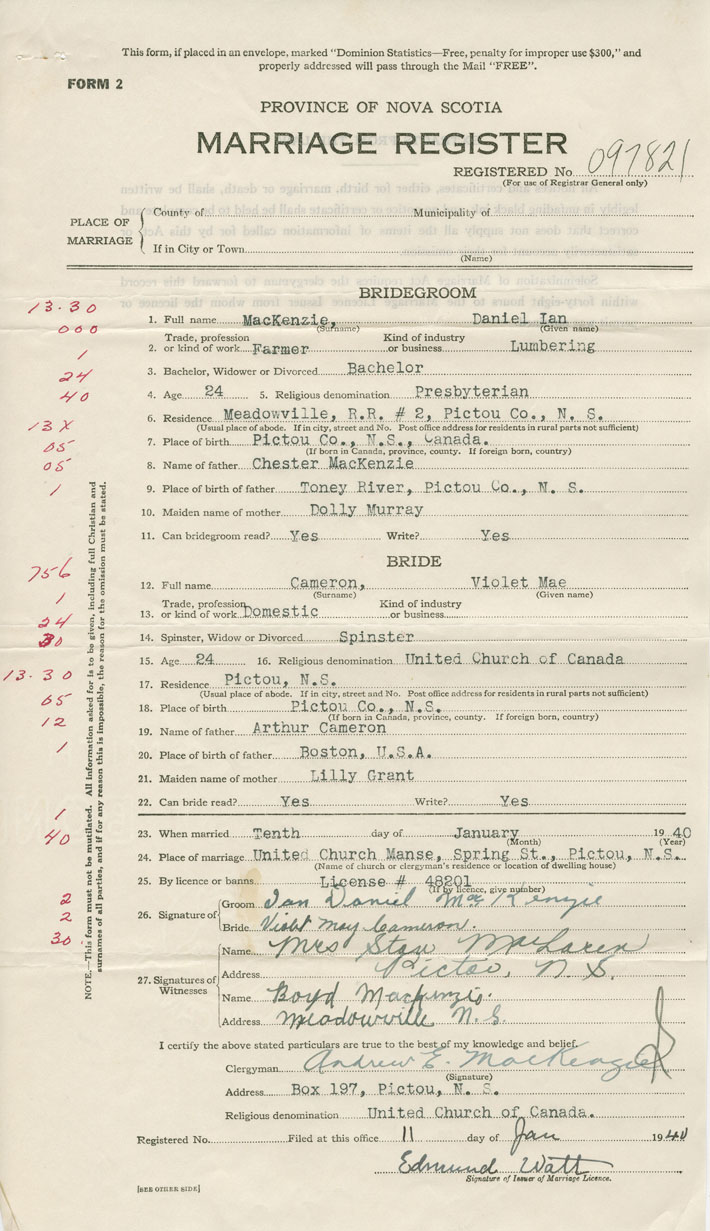 This form, if placed in an envelope, marked "Dominion Statistics—Free, penalty for improper use $300," and
properly addressed will pass through the Mail "FREE".
FORM 2
PROVINCE OF NOVA SCOTIA
MARRIAGE REGISTER
REGISTERED No. 097821
(For use of Registrar General only)
PLACE OF MARRIAGE
County of
Municipality of
If in City or Town
(Name)
BRIDEGROOM
13.30
1. Full name MacKenzie, Daniel Ian
(Surname) (Given name)
000
2. Trade, profession or kind of work Farmer Kind of industry or business Lumbering
1
3. Bachelor, Widower or Divorced Bachelor
24
4. Age 24 5. Religious denomination Presbyterian
40
6. Residence Meadowville, R.R. # 2, Pictou Co., N. S.
(Usual place of abode. If in city, street and No. Post office address for residents in rural parts not sufficient)
13 X
7. Place of birth Pictou Co., N.S., Canada.
(If born in Canada, province, county. If foreign born, country)
05
8. Name of father Chester MacKenzie
05
9. Place of birth of father Toney River, Pictou Co., N. S.
1
10. Maiden name of mother Dolly Murray
11. Can bridegroom read? Yes Write? Yes
BRIDE
756
12. Full name Cameron, Violet Mae
(Surname) (Given name)
1
13. Trade, profession or kind of work Domestic Kind of industry or business
24
30
14. Spinster, Widow or Divorced Spinster
15. Age 24 16. Religious denomination United Church of Canada
13.30
17. Residence Pictou, N.S.
(Usual place of abode. If in city, street and No. Post office address for residents in rural parts not sufficient)
05
18. Place of birth Pictou Co., N.S.
(If born in Canada, province, county. If foreign born, country)
12
19. Name of father Arthur Cameron
1
20. Place of birth of father Boston, U.S.A.
21. Maiden name of mother Lilly Grant
22. Can bride read? Yes Write? Yes
1
23. When married Tenth day of January 1940
(Month) (Year)
40
24. Place of marriage United Church Manse, Spring St., Pictou, N.S.
(Name of church or clergyman's residence or location of dwelling house)
25. By licence or banns License # 48201
(If by licence, give number)
2
2
30
26. Signature of
Groom Ian Daniel MacKenzie
Bride Violet May Cameron.
27. Signatures of Witnesses
Name Mrs Stan MacLaren
Address Pictou, N.S.
Name Boyd Mackenzie.
Address Meadowville N.S.
I certify the above stated particulars are true to the best of my knowledge and belief.
Clergyman Andrew E. MacKenzie
(Signature)
Address Box 197, Pictou, N. S.
Religious denomination United Church of Canada.
Registered No. Filed at this office 11 day of Jan 1940
Edmund Watt
Signature of Issuer of Marriage Licence.
[SEE OTHER SIDE]
NOTE.—This form must not be mutilated. All information asked for is to be given, including full Christian and
surnames of all parties, and if for any reason this is impossible, the reason for the omission must be stated.